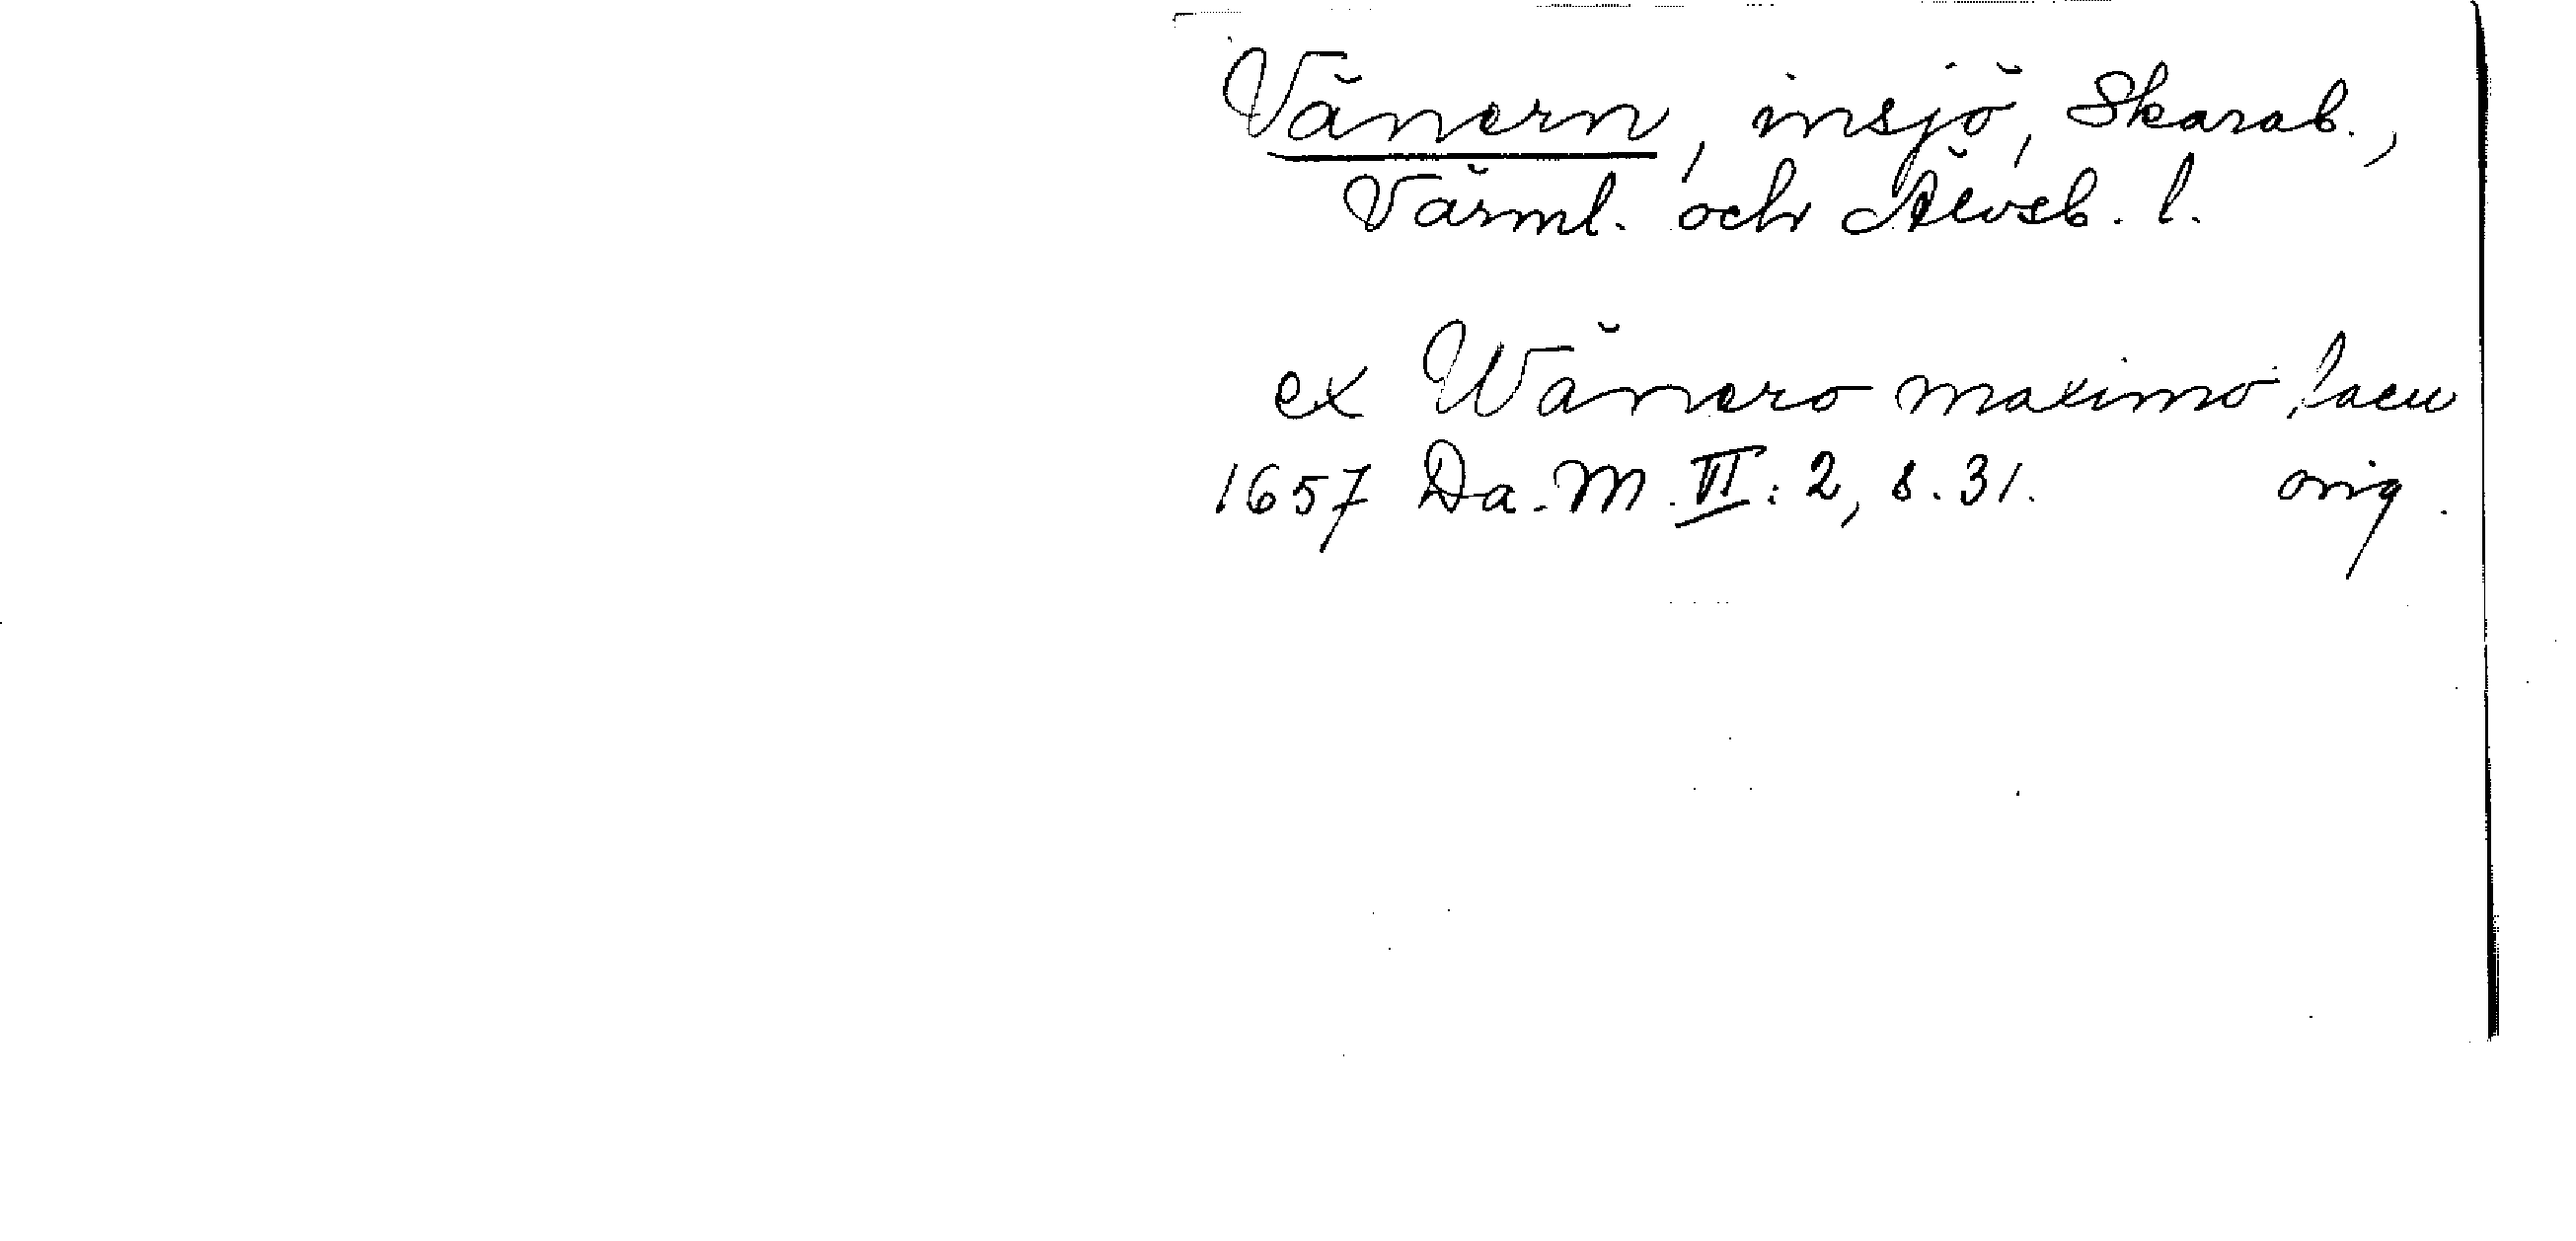 Vänern, insjö, Skarab.,
Värml. och Älvsb. l.
ex Wänero maximo, lacu
1657 Da. M. VI: 2, s. 31. orig.